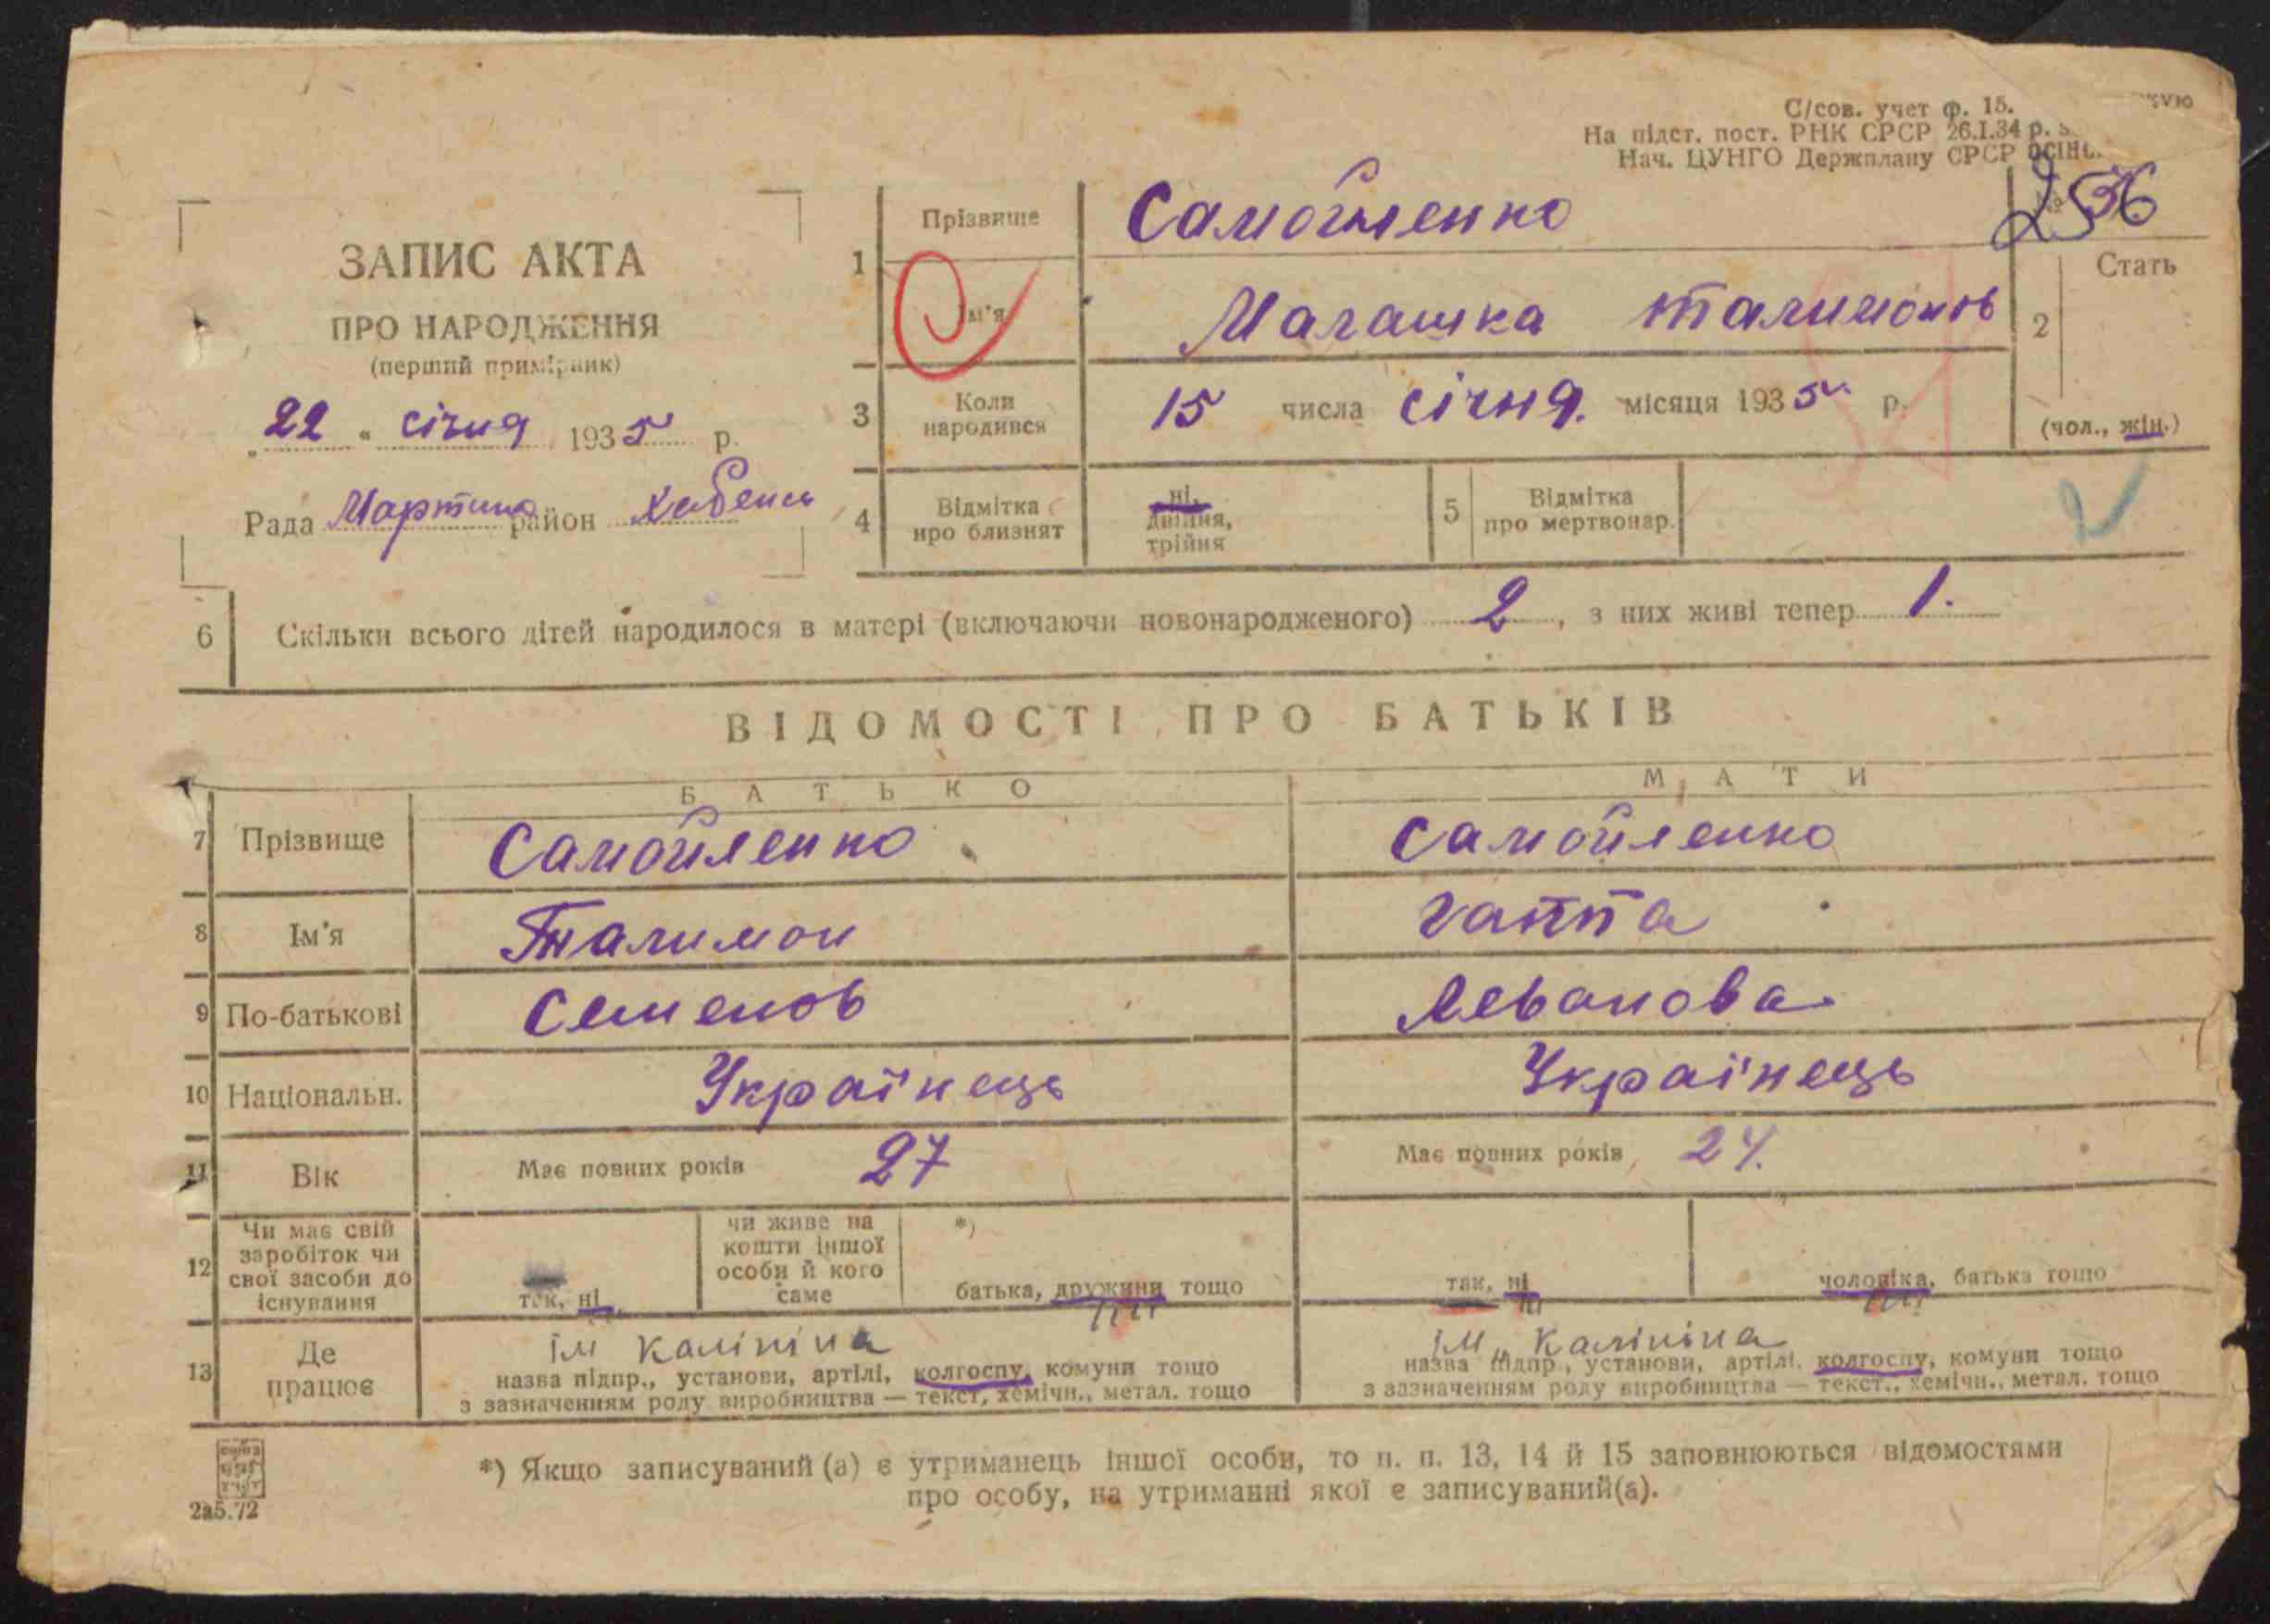 С/сов. учет ф. 15.
На підст. пост. РНК СРСР 26.I.34 р.
Нач. ЦУНГО Держплану СРСР ОСІНС.
ЗАПИС АКТА
ПРО НАРОДЖЕННЯ
(перший примірник)
„22 " січня 1935 р.
Рада Мартин район Хабенсь
1
Прізвище
Самойленко
№ 256
Ім'я
Малашка Талимонов
2
Стать
(чол., жін.)
3
Коли народився
15 числа січня. місяця 1935 р.
4
Відмітка про близнят
ні,
двійня,
трійня
5
Відмітка про мертвонар.
2
6
Скільки всього дітей народилося в матері (включаючи новонародженого) 2, з них живі тепер 1.
ВІДОМОСТІ ПРО БАТЬКІВ
БАТЬКО
МАТИ
7 Прізвище Самойленко Самойленко
8 Ім'я Талимон Ганна
9 По-батькові Семенов Леванова
10 Національн. Українець Українець
11 Вік Має повних років 27 Має повних років 24.
12
Чи має свій заробіток чи свої засоби до існування
так, ні
чи живе на кошти іншої особи й кого саме
*)
батька, дружини тощо
так, ні
чоловіка, батька тощо
13
Де працює
ім Калініна
назва підпр., установи, артілі, колгоспу, комуни тощо
з зазначенням роду виробництва — текст, хемічн., метал. тощо
ім Калініна
назва підпр., установи, артілі, колгоспу, комуни тощо
з зазначенням роду виробництва — текст., хемічн., метал. тощо
*) Якщо записуваний (а) є утриманець іншої особи, то п. п. 13, 14 й 15 заповнюються відомостями
про особу, на утриманні якої є записуваний(а).
2а5.72